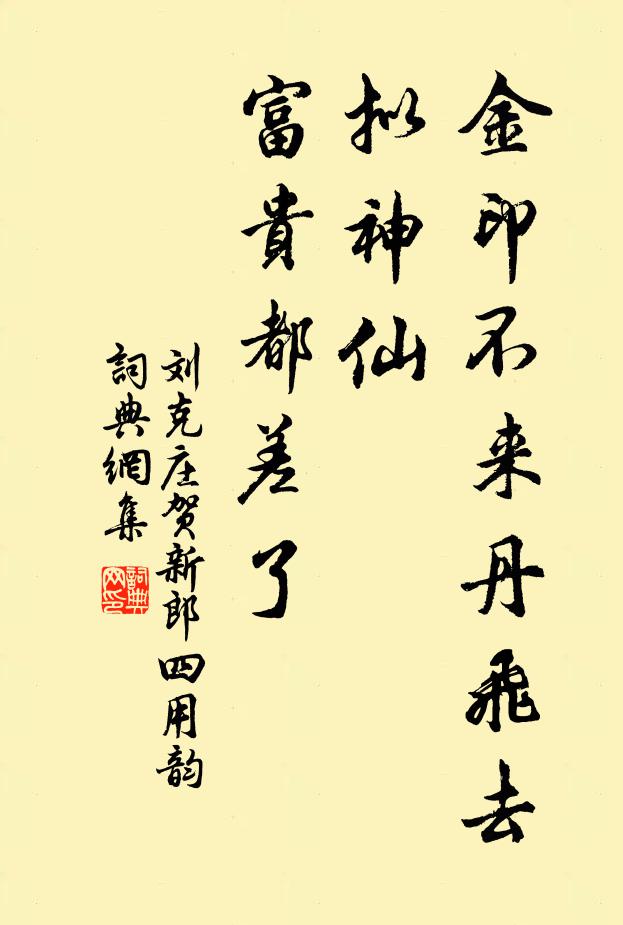 金印不来丹飛去
拟神仙
富貴都差了
刘克庄贺新郎四用韵
詞典網集
詞典
网印